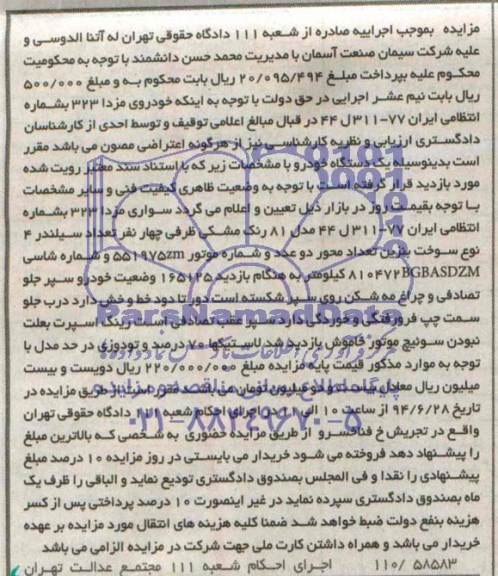 مزایده بموجب اجراییه صادره از شعبه ۱۱۱ دادگاه حقوقی تهران له آتنا الدوسی و
علیه شرکت سیمان صنعت آسمان با مدیریت محمد حسن دانشمند با توجه به محکومیت
محکوم علیه بپرداخت مبلغ ۲۰/۰۹۵/۴۹۴ ریال بابت محکوم به و مبلغ ۵۰۰/۰۰۰
ریال بابت نیم عشر اجرایی در حق دولت با توجه به اینکه خودروی مزدا ۳۲۳ بشماره
انتظامی ایران ۷۷-۳۱۱ل۴۴ در قبال مبالغ اعلامی توقیف و توسط احدی از کارشناسان
دادگستری ارزیابی و نظریه کارشناسی نیز از هرگونه اعتراضی مصون می باشد مقرر
است بدینوسیله یک دستگاه خودرو با مشخصات زیر که با استناد سند معتبر رویت شده
مورد بازدید قرار گرفته است با توجه به وضعیت ظاهری کیفیت فنی و سایر مشخصات
با توجه بقیمت روز در بازار ذیل تعیین و اعلام می گردد سواری مزدا ۳۲۳ بشماره
انتظامی ایران ۷۷-۳۱۱ل۴۴ مدل ۸۱ رنگ مشکی ظرفی چهار نفر تعداد سیلندر ۴
نوع سوخت بنزین تعداد محور دو عدد و شماره موتور ۵۵۱۹۷۵zm و شماره شاسی
۸۱۰۴۷۲BGBASDZM کیلومتر به هنگام بازدید ۱۶۵۱۲۵ وضعیت خودرو سپر جلو
تصادفی و چراغ مه شکن روی سپر شکسته است دور تا دود خط و خش دارد درب جلو
سمت چپ فرورفتگی و خوردگی دارد سپر عقب تصادفی است رینگ اسپرت بعلت
نبودن سوئیچ موتور خاموش بازدید شد لاستیکها ۷۰ درصد و تودوزی در حد مدل با
توجه به موارد مذکور قیمت پایه مزایده مبلغ ۲۲۰/۰۰۰/۰۰۰ ریال دویست و بیست
میلیون ریال معادل بیست و دو میلیون تومان می باشد مقرر است از طریق مزایده در
تاریخ ۹۴/۶/۲۸ از ساعت ۱۰ الی ۱۱ در اجرای احکام شعبه ۱۱۱ دادگاه حقوقی تهران
واقع در تجریش خ فناخسرو از طریق مزایده حضوری به شخصی که بالاترین مبلغ
را پیشنهاد دهد فروخته می شود خریدار می بایستی در روز مزایده ۱۰ درصد مبلغ
پیشنهادی را نقدا و فی المجلس بصندوق دادگستری تودیع نماید و الباقی را ظرف یک
ماه بصندوق دادگستری سپرده نماید در غیر اینصورت ۱۰ درصد پرداختی پس از کسر
هزینه بنفع دولت ضبط خواهد شد ضمنا کلیه هزینه های انتقال مورد مزایده بر عهده
خریدار می باشد و همراه داشتن کارت ملی جهت شرکت در مزایده الزامی می باشد
۱۱۰/ ۵۸۵۸۳ اجرای احکام شعبه ۱۱۱ مجتمع عدالت تهران
ParsNamadData
۰۲۱-۸۸۳۴۹۶۷۰-۵